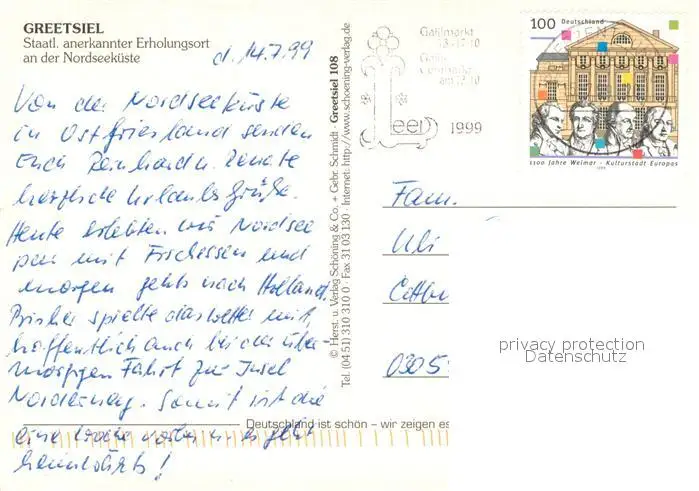 GREETSIEL
Staatl. anerkannter Erholungsort
an der Nordseeküste
d. 14.7.99
Von der Nordseeküste
in Ostfriesland senden
Euch Reinhard u. Renate
herzliche Urlaubsgrüße.
Heute erlebten wir Nordsee
pur mit Fischessen und
morgen gehts nach Holland.
Bisher spielte das Wetter mit,
hoffentlich auch bei der über-
morgigen Fahrt zur Insel
Norderney. Somit ist die
eine Woche vorbei u. es geht
heimwärts!
© Herst. u. Verlag Schöning & Co. + Gebr. Schmidt · Greetsiel 108
Tel. (04 51) 310 310 0 · Fax 31 03 130 · Internet: http://www.schoening-verlag.de
Gallimarkt
13.-17.10
am 12.10
Leer
1999
100 Deutschland
1100 Jahre Weimar - Kulturstadt Europas
1999
Fam.
Uli
Cottbu
0305
privacy protection
Datenschutz
Deutschland ist schön – wir zeigen es